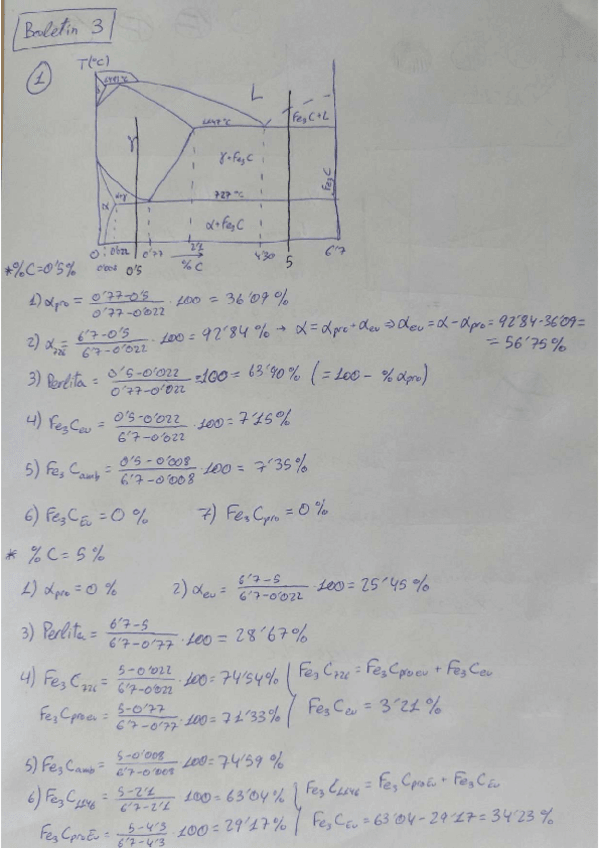 Boletín 3
1
T(°C)
L
1147°C
Fe3C+L
γ
γ+Fe3C
Fe3C
727°C
α
α+γ
α+Fe3C
0 0'022 0'77 2'1 4'30 5 6'7
0'008 0'5 %C
* %C=0'5%
1) αpro = 0'77-0'5 / 0'77-0'022 · 100 = 36'09%
2) α726 = 6'7-0'5 / 6'7-0'022 · 100 = 92'84% → α = αpro + αeu ⇒ αeu = α - αpro = 92'84-36'09 =
= 56'75%
3) Perlita = 0'5-0'022 / 0'77-0'022 · 100 = 63'90% (= 100 - % αpro)
4) Fe3Ceu = 0'5-0'022 / 6'7-0'022 · 100 = 7'15%
5) Fe3Camb = 0'5-0'008 / 6'7-0'008 · 100 = 7'35%
6) Fe3CEu = 0% 7) Fe3Cpro = 0%
* %C = 5%
1) αpro = 0% 2) αeu = 6'7-5 / 6'7-0'022 · 100 = 25'45%
3) Perlita = 6'7-5 / 6'7-0'77 · 100 = 28'67%
4) Fe3C726 = 5-0'022 / 6'7-0'022 · 100 = 74'54% Fe3C726 = Fe3Cproeu + Fe3Ceu
Fe3Cproeu = 5-0'77 / 6'7-0'77 · 100 = 71'33% Fe3Ceu = 3'21%
5) Fe3Camb = 5-0'008 / 6'7-0'008 · 100 = 74'59%
6) Fe3C1146 = 5-2'1 / 6'7-2'1 · 100 = 63'04% Fe3C1146 = Fe3CproEu + Fe3CEu
Fe3CproEu = 5-4'3 / 6'7-4'3 · 100 = 29'17% Fe3CEu = 63'04 - 29'17 = 34'23%